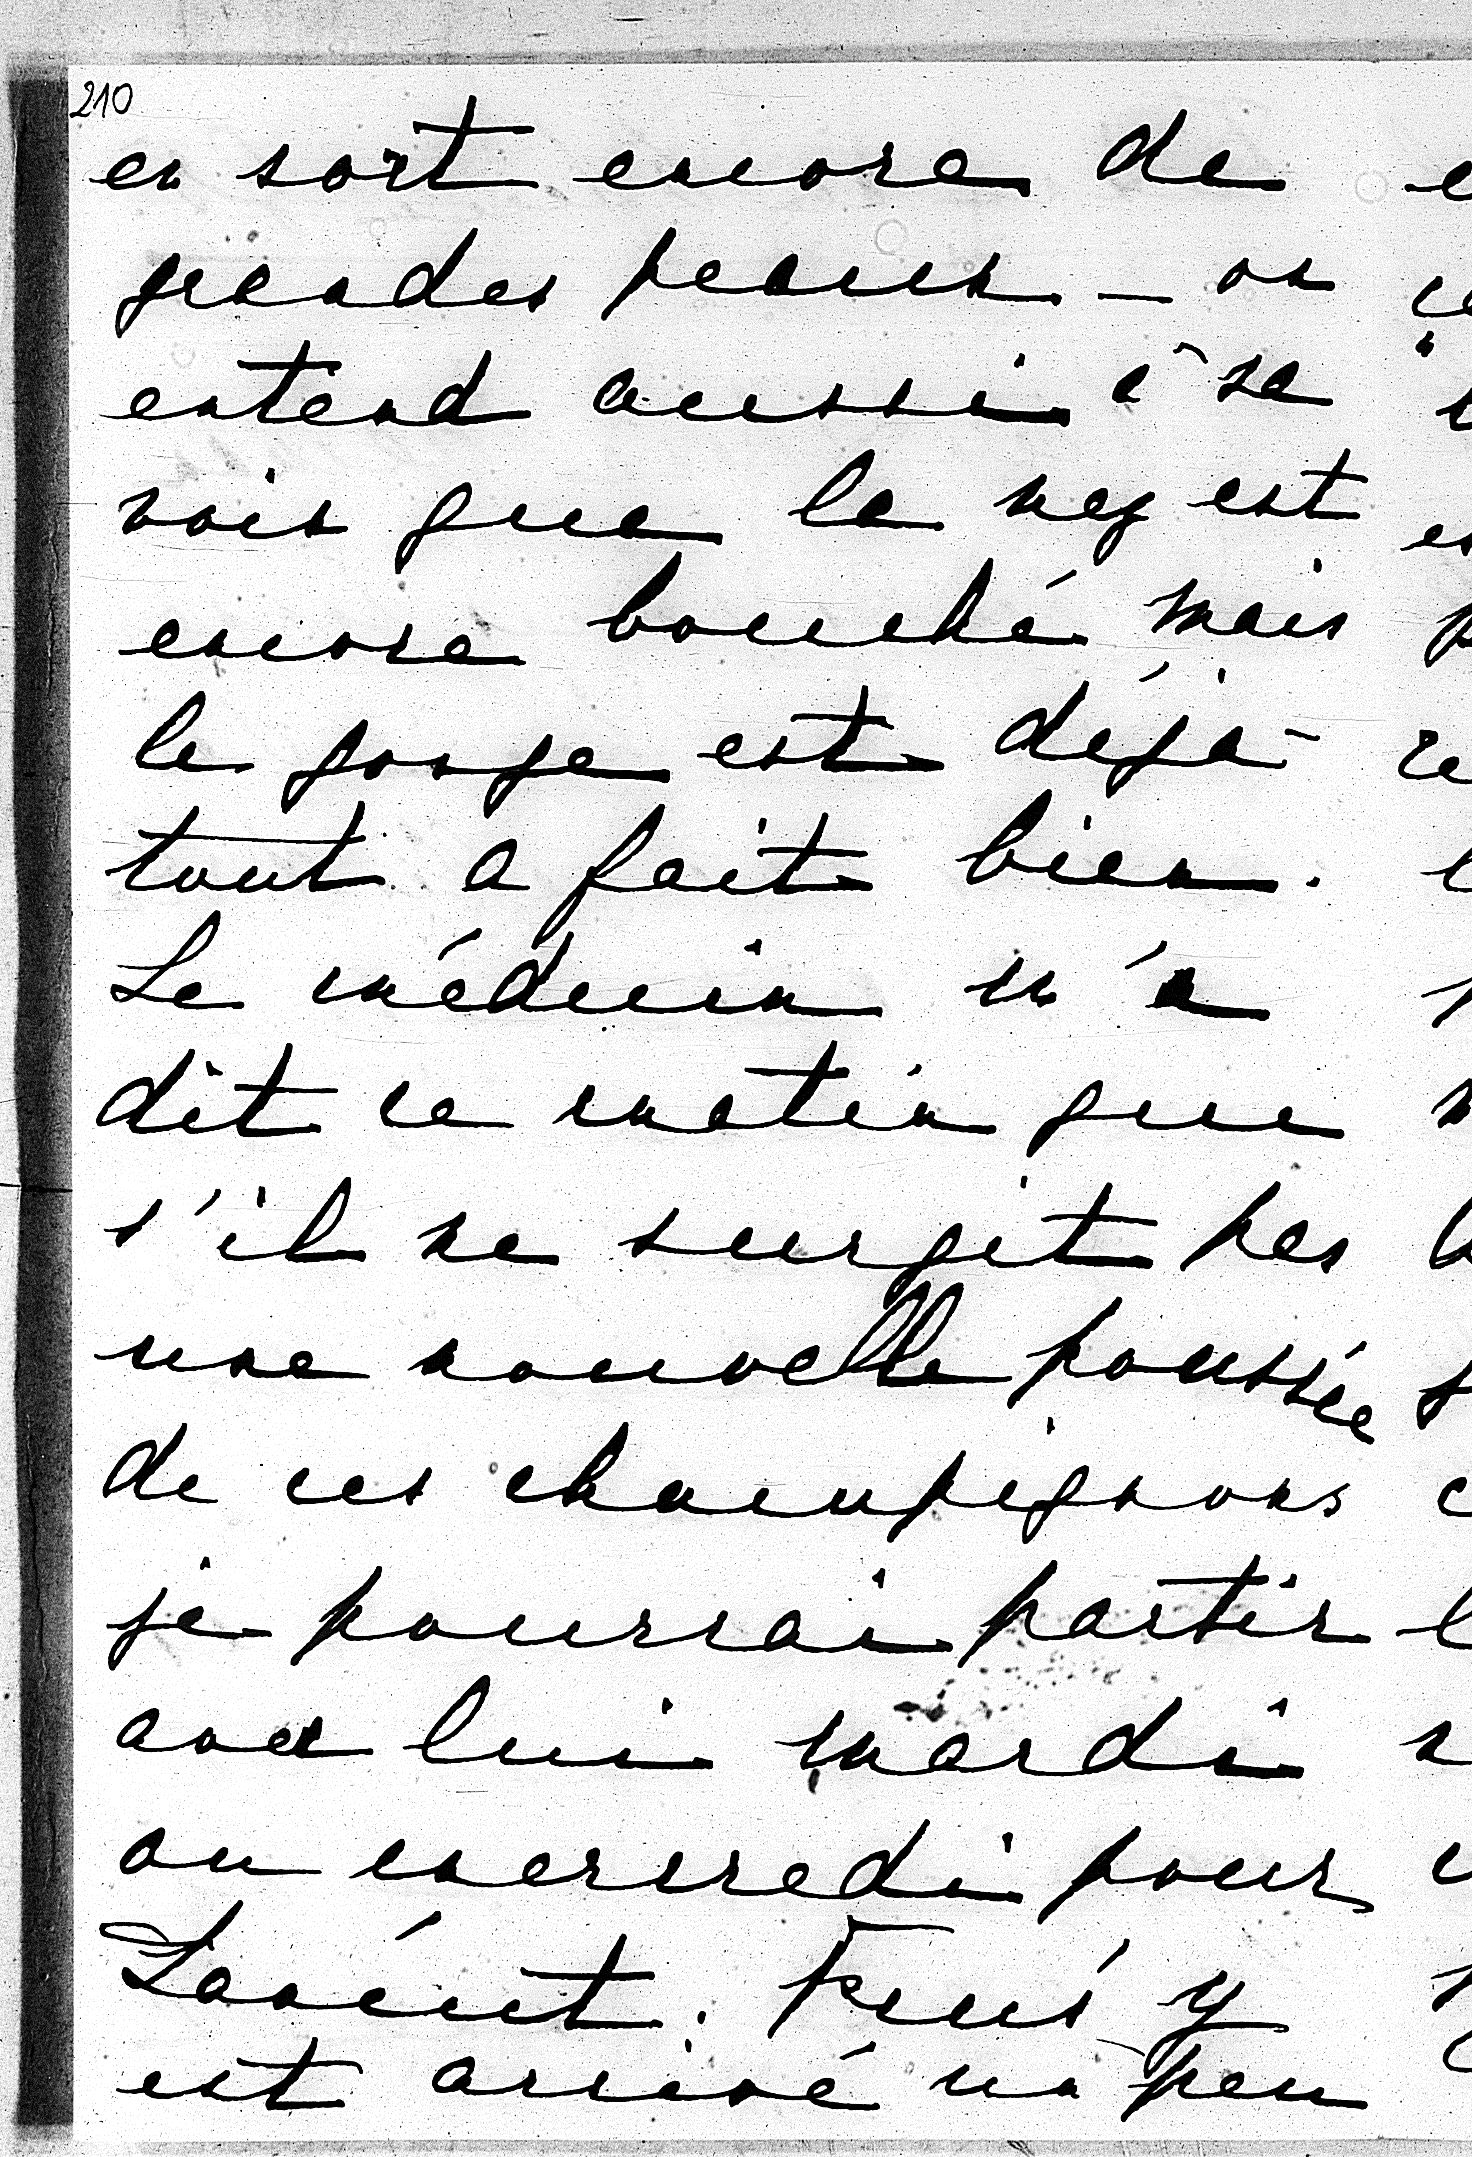 210
en sort encore de
grandes peaus – on
entend aussi à sa
voix que le nez est
encore bouché mais
la gorge est déjà
tout a fait bien.
Le médecin m'a
dit ce matin que
s'il ne surgit pas
une nouvelle poussée
de ces champignons
je pourrai partir
avec lui mardi
ou mercredi pour
est arrivé un peu